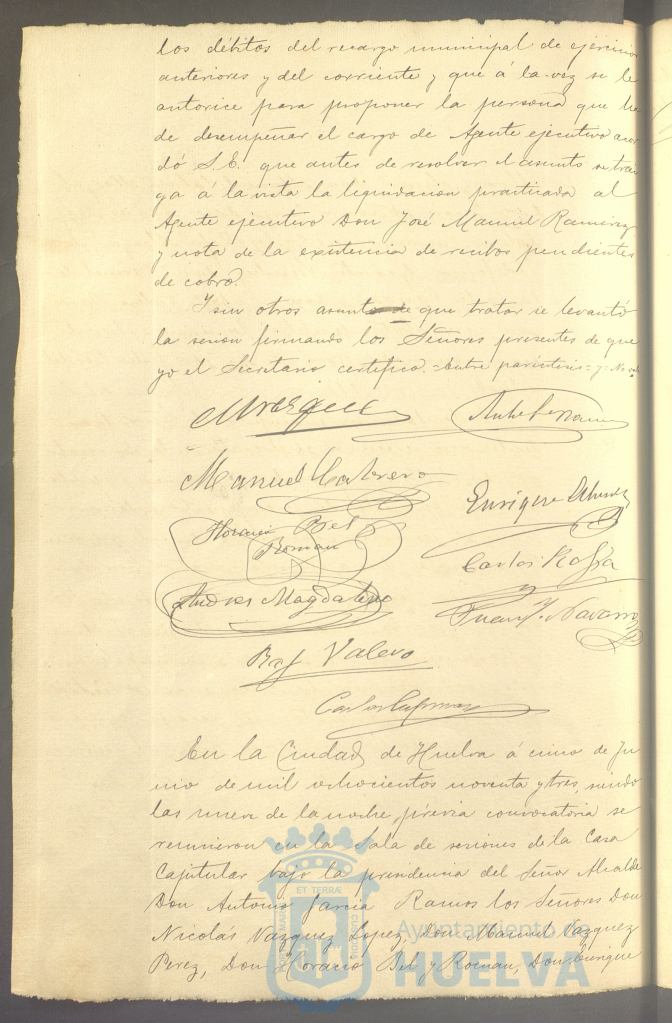 los débitos del recargo municipal de ejercicios
anteriores y del corriente y que á la vez se le
autorice para proponer la persona que ha
de desempeñar el cargo de Agente ejecutivo acor
dó S.E. que antes de resolver el asunto se trai
ga á la vista la liquidacion practicada al
Agente ejecutivo Don José Manuel Ramirez
y nota de la existencia de recibos pendientes
de cobro.
Y sin otros asuntos de que tratar se levantó
la sesion firmando los Señores presentes de que
yo el Secretario certifico. Entre parentesis = y = No
Manuel Cabrero
Enrique
Horacio Bel
Roman
Carlos
Andres Magdaleno
Juan Y. Navarro
Raf Valero
Carlos
En la Ciudad de Huelva á cinco de Ju
nio de mil ochocientos noventa y tres, siendo
las nueve de la noche, prévia convocatoria se
reunieron en la Sala de sesiones de la Casa
Capitular bajo la presidencia del Señor Alcalde
Don Antonio Garcia Ramos los Señores Don
Nicolás Vazquez Lopez, Don Manuel Vazquez
Perez, Don Horacio Bel y Roman, Don Enrique
ET TERRÆ
Ayuntamiento de
HUELVA